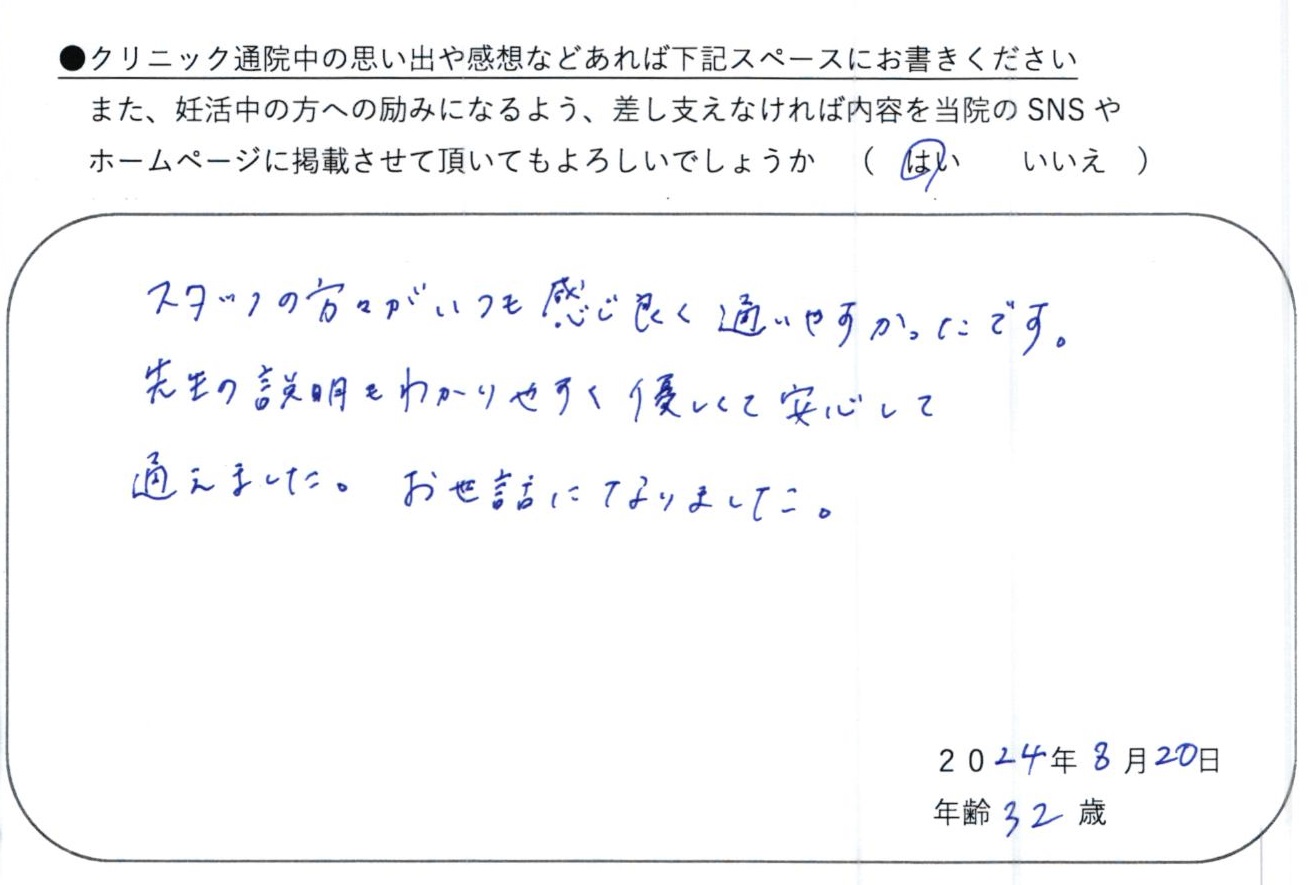 ●クリニック通院中の思い出や感想などあれば下記スペースにお書きください
また、妊活中の方への励みになるよう、差し支えなければ内容を当院の SNS や
ホームページに掲載させて頂いてもよろしいでしょうか （ はい いいえ ）
スタッフの方々がいつも感じ良く通いやすかったです。
先生の説明もわかりやすく優しくて安心して
通えました。 お世話になりました。
2024年 8月20日
年齢 32 歳